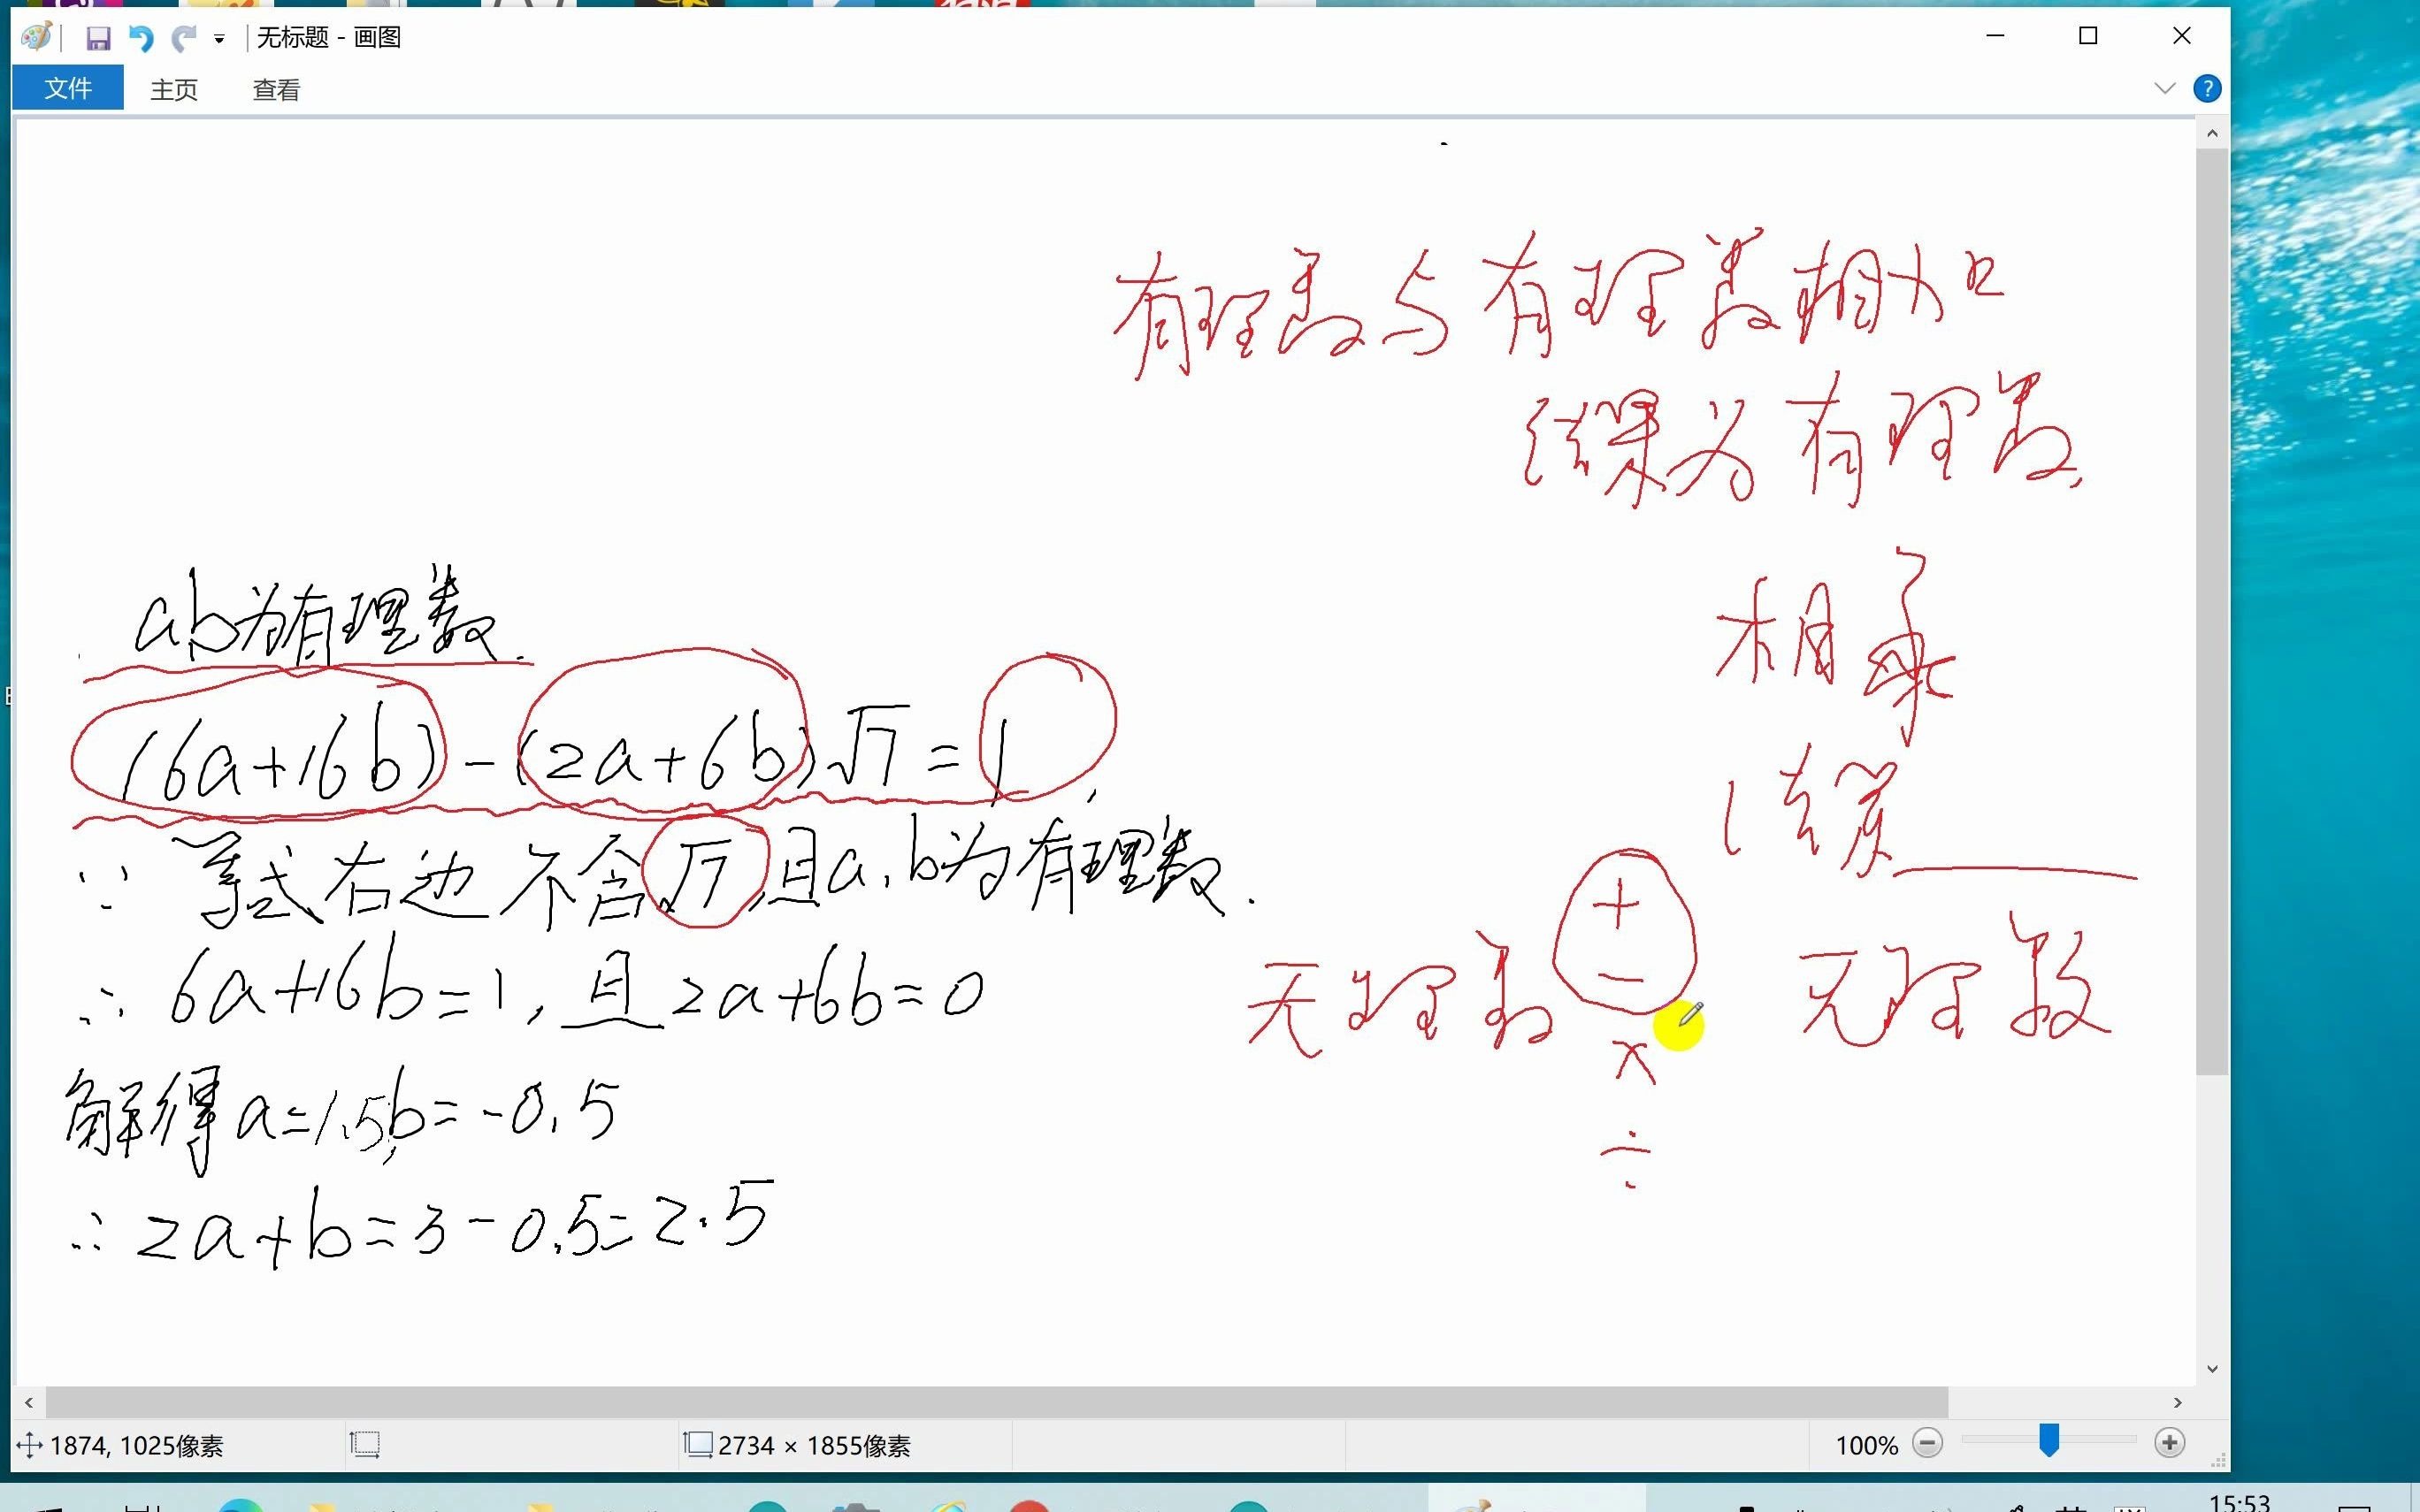 无标题 - 画图
文件 主页 查看
有理数与有理数相加
结果为有理数,
相乘
结果
ab为有理数.
(6a+16b)-(2a+6b)√7=1,
∵ 等式右边不含√7,且a,b为有理数.
∴ 6a+16b=1,且2a+6b=0
解得a=1.5,b=-0.5
∴ 2a+b=3-0.5=2.5
无理数 + 无理数
-
×
÷
1874, 1025像素 2734 × 1855像素 100%
15:53